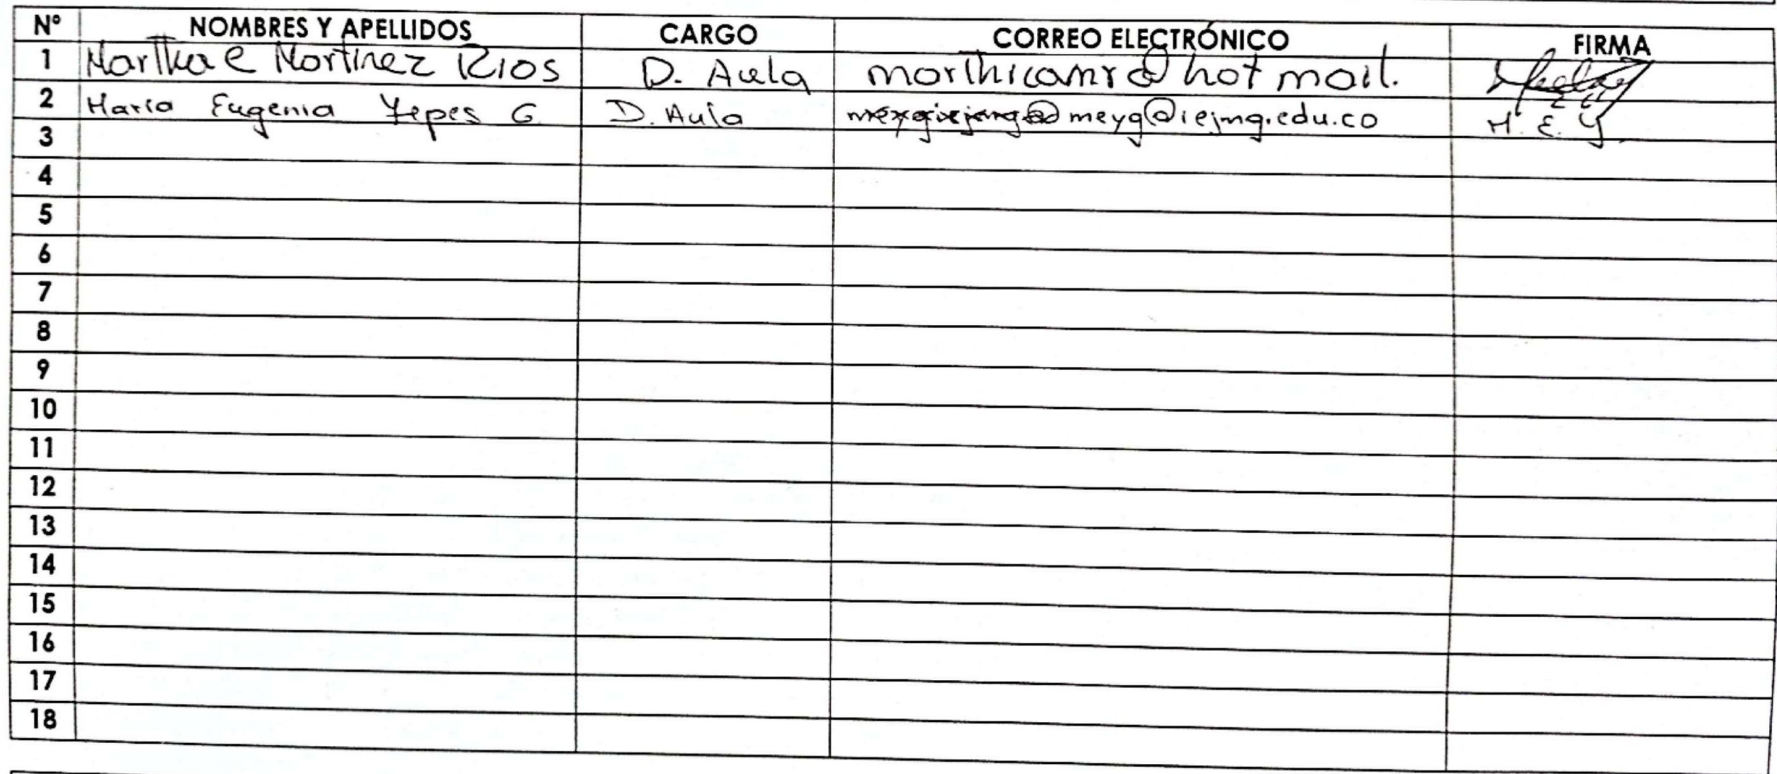 Nº NOMBRES Y APELLIDOS CARGO CORREO ELECTRÓNICO FIRMA
1 Martha C Martinez Rios D. Aula marthicamr@hotmail.
2 Maria Eugenia Yepes G. D. Aula meyg@iejmg.edu.co M. E. Y.
3
4
5
6
7
8
9
10
11
12
13
14
15
16
17
18